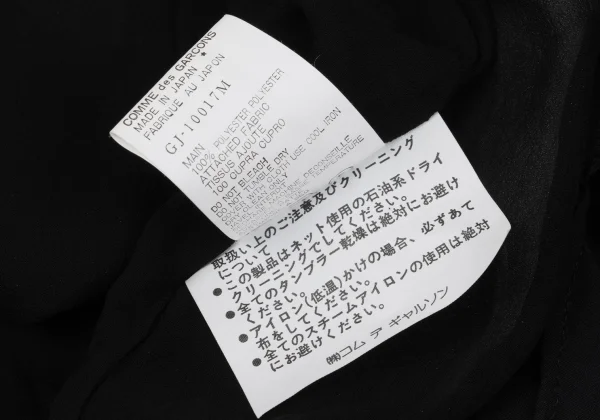 COMME des GARCONS
MADE IN JAPAN *
FABRIQUE AU JAPON
GJ-10017M
MAIN
100% POLYESTER POLYESTER
ATTACHED FABRIC
TISSUS AJOUTE
100 CUPRA CUPRO
DO NOT BLEACH
DO NOT TUMBLE DRY
COVER WITH CLOTH USE COOL IRON
DRY CLEAN ONLY
取扱い上のご注意及びクリーニング
について
●この製品はネット使用の石油系ドライ
クリーニングでしてください。
●全てのタンブラー乾燥は絶対にお避け
ください。
●アイロン(低温)かけの場合、必ずあて
布をしてください。
●全てのスチームアイロンの使用は絶対
にお避けください。
㈱コム デ ギャルソン